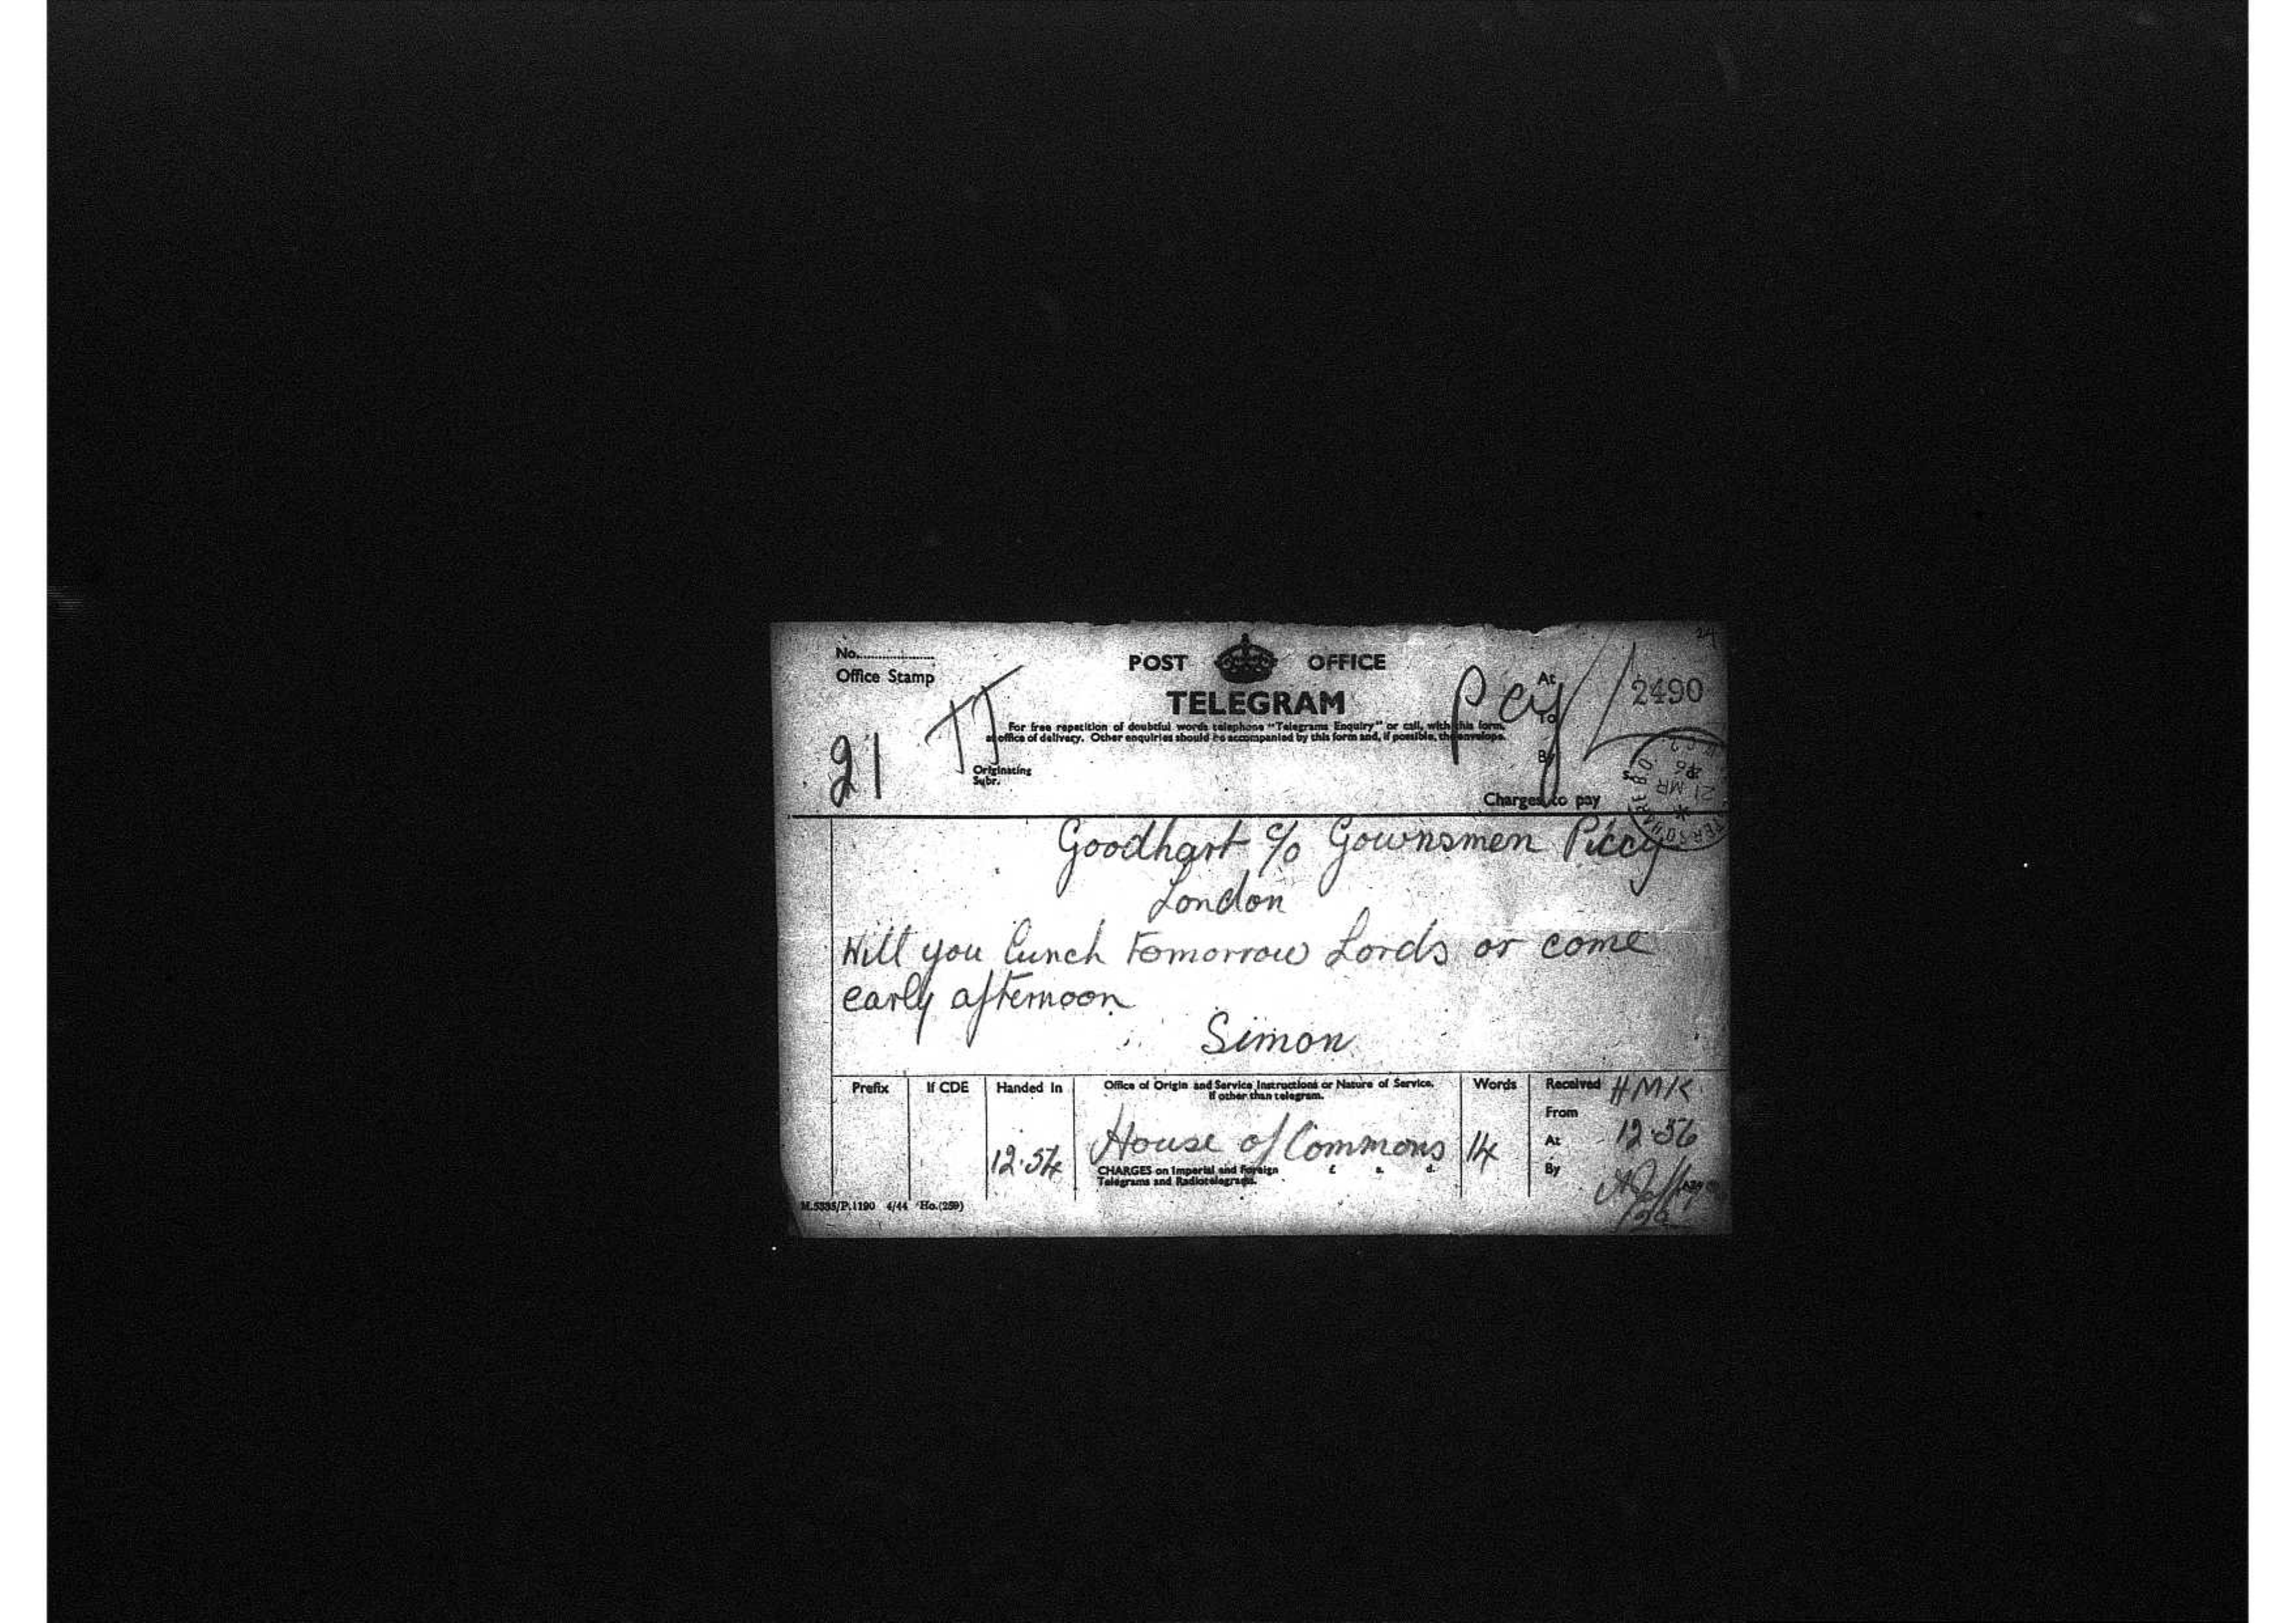 24
No....................
Office Stamp
POST OFFICE
TELEGRAM
For free repetition of doubtful words telephone "Telegrams Enquiry" or call, with this form,
at office of delivery. Other enquiries should be accompanied by this form and, if possible, the envelope.
21
TJ
Pcy
At
To
By
2490
Originating
Subr.
s.
Charges to pay
21 MR
46
Goodhart c/o Gownsmen Piccy
London
Will you lunch tomorrow Lords or come
early afternoon
Simon
Prefix
If CDE
Handed In
12.54
Office of Origin and Service Instructions or Nature of Service,
if other than telegram.
House of Commons
CHARGES on Imperial and Foreign £ s. d.
Telegrams and Radiotelegrams.
Words
14
Received HMK
From
At 12.56
By
M.5335/P.1190 4/44 Ho.(259)